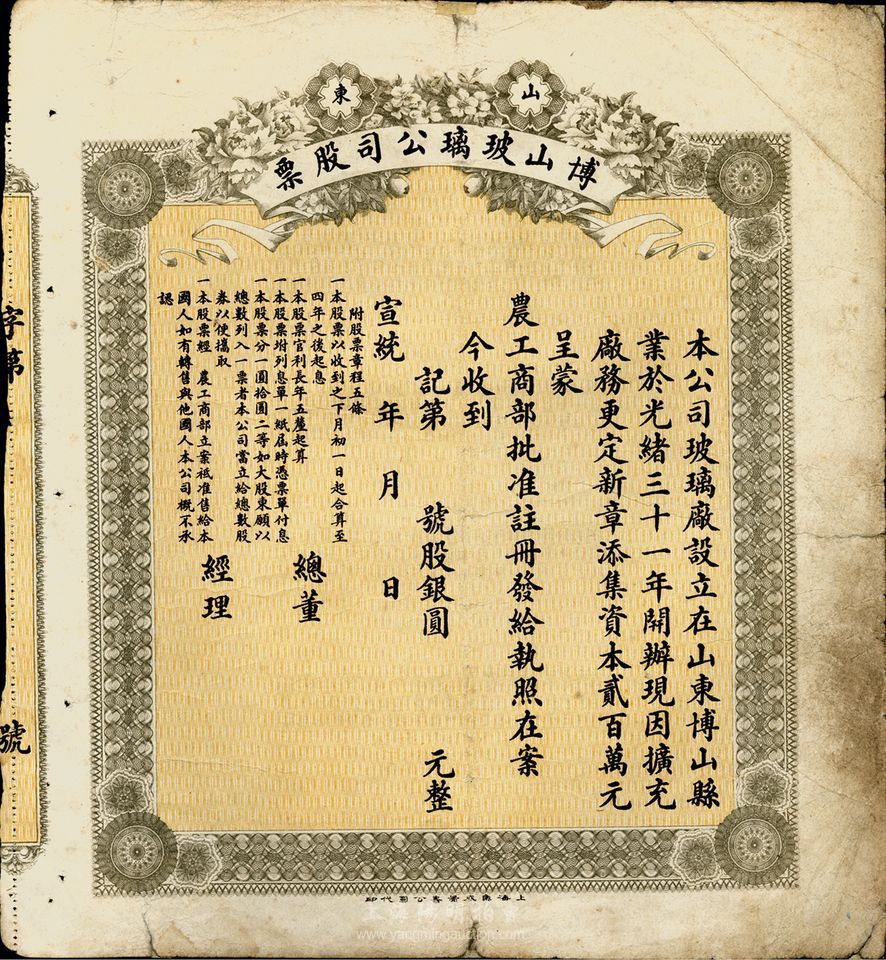 山東
博山玻璃公司股票
本公司玻璃廠設立在山東博山縣
業於光緒三十一年開辦現因擴充
廠務更定新章添集資本貳百萬元
呈蒙
農工商部批准註冊發給執照在案
今收到
記第 號股銀圓 元整
宣統 年 月 日
附股票章程五條
一本股票以收到之下月初一日起合算至
四年之後起息
一本股票官利長年五釐起算
一本股票坿列息單一紙屆時憑票單付息
一本股票分一圓拾圓二等如大股東願以
總數列入一票者本公司當立給總數股
券以便攜取
一本股票經 農工商部立案祗准售給本
國人如有轉售與他國人本公司概不承
認
總董
經理
字第 號
www.yangmingauction.com